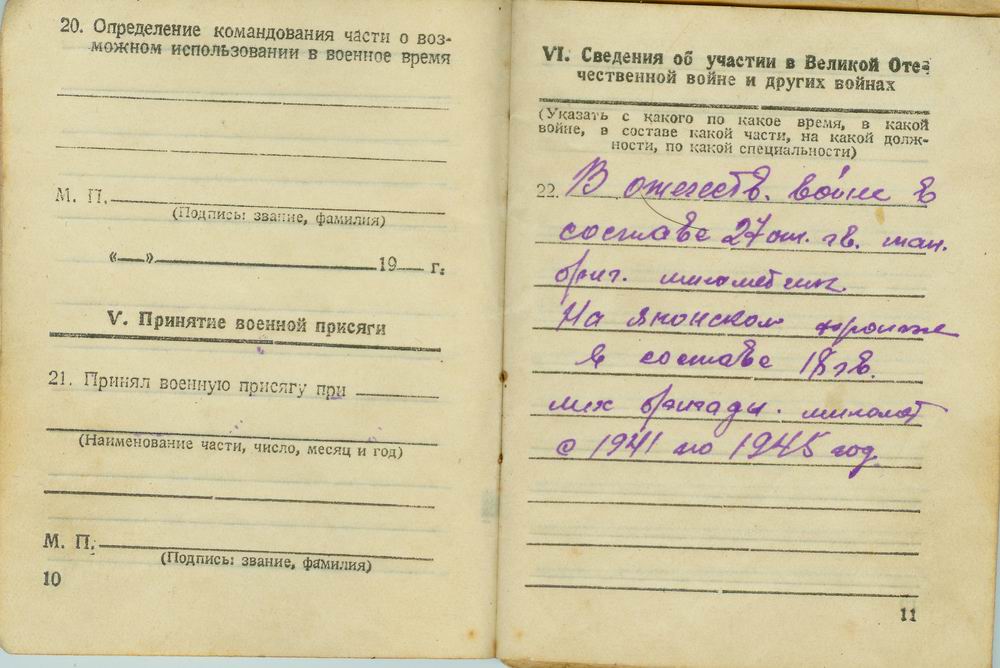 20. Определение командования части о воз-
можном использовании в военное время
М. П.
(Подпись: звание, фамилия)
«—» 19— г.
V. Принятие военной присяги
21. Принял военную присягу при
(Наименование части, число, месяц и год)
М. П.
(Подпись: звание, фамилия)
10
VI. Сведения об участии в Великой Оте-
чественной войне и других войнах
(Указать с какого по какое время, в какой
войне, в составе какой части, на какой долж-
ности, по какой специальности)
22. В отечеств. войне в
составе 27 от. гв. тан.
бриг. минометчик.
На японском фронте
в составе 18 гв.
мех бригады. миномет
с 1941 по 1945 год.
11